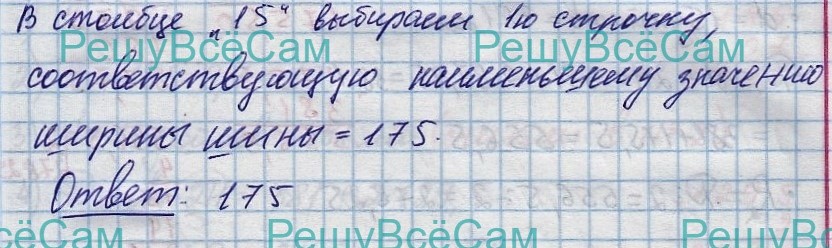 В столбце „15“ выбираем 1ю строчку,
РешуВсёСам РешуВсёСам
соответствующую наименьшему значению
ширины шины = 175.
Ответ: 175
РешуВсёСам РешуВсёСам